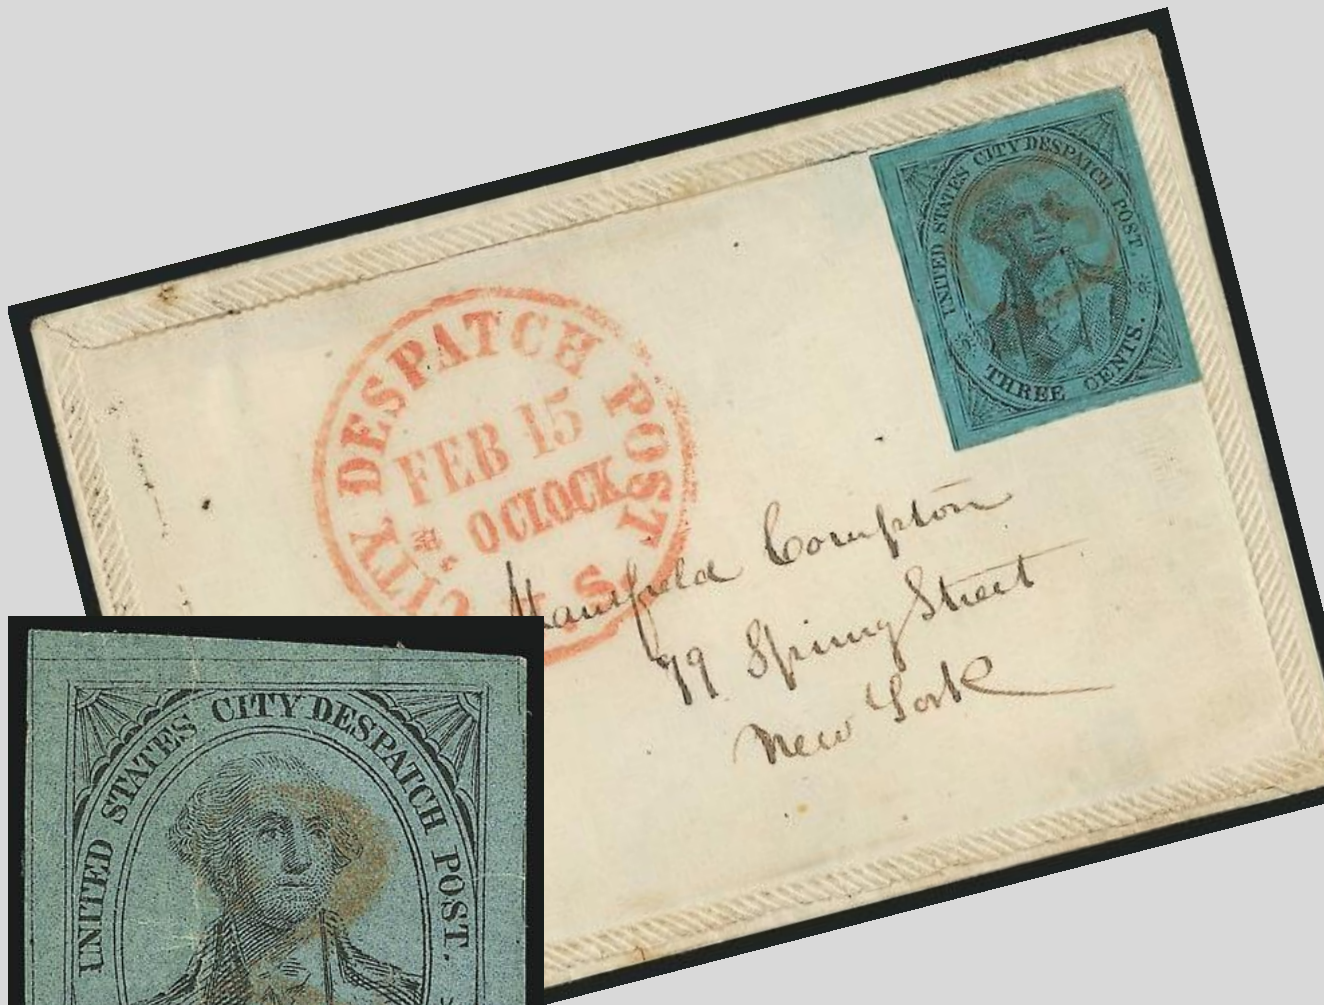 UNITED STATES CITY DESPATCH POST
THREE CENTS.
CITY DESPATCH POST
FEB 15
O CLOCK
S.
Mansfield Compton
79 Spring Street
New York
UNITED STATES CITY DESPATCH POST.